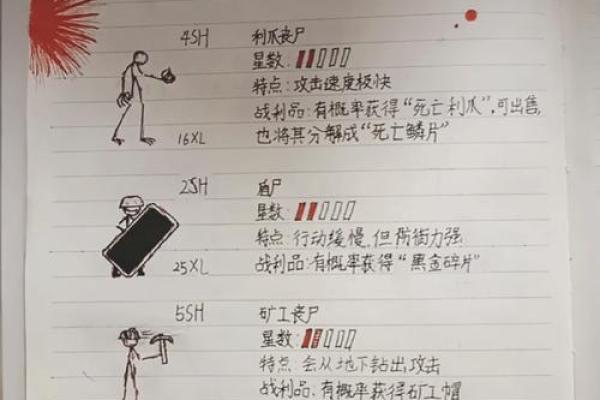 4SH 利爪丧尸
星数:
特点: 攻击速度极快
战利品: 有概率获得“死亡利爪”, 可出售,
16XL 也将其分解成“死亡鳞片”
2SH 盾尸
星数:
特点: 行动缓慢, 但防御力强
25XL 战利品: 有概率获得“黑金碎片”
5SH 矿工丧尸
星数:
特点: 会从地下钻出攻击
战利品: 有概率获得矿工帽